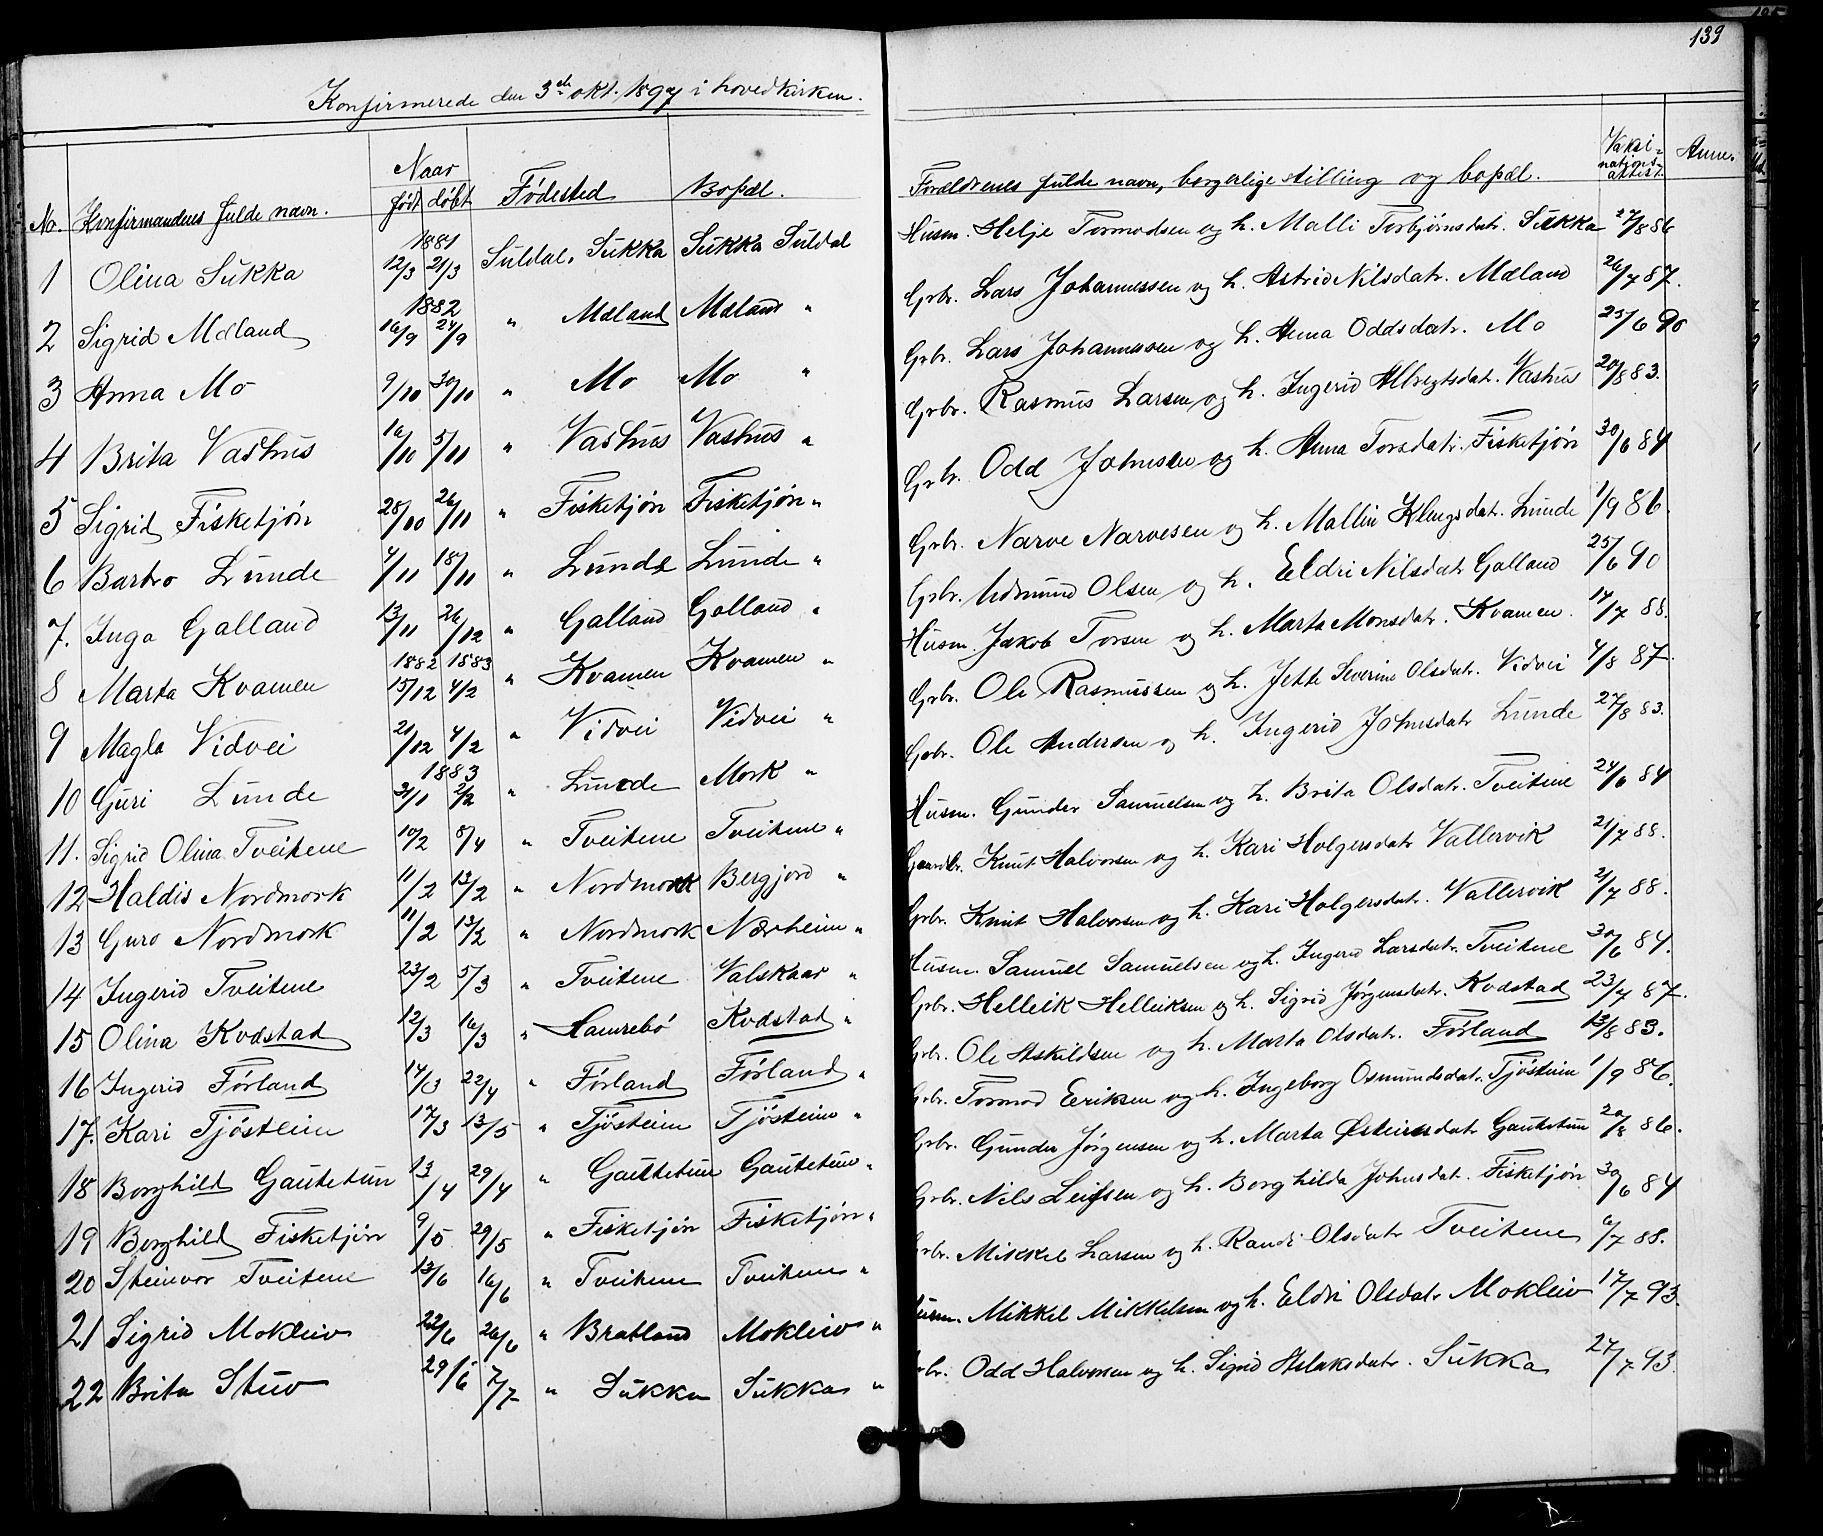 139
Konfirmerede den 3de okt. 1897 i hovedkirken.
No. Konfirmandens fulde navn. Naar født døbt Fødested Bopæl. Forældrenes fulde navn, borgerlige stilling og bopæl. Vaksinationsattest. Anm.
1881
1 Olina Sukka 12/3 21/3 Suldal, Sukka Sukka Suldal Husm. Helje Tormodsen og h. Malli Torbjørnsdatr. Sukka 27/8 86
1882
2 Sigrid Mæland 16/9 24/9 " Mæland Mæland " Grbr. Lars Johannessen og h. Astrid Nilsdatr. Mæland 26/7 87.
3 Anna Mo 9/10 30/10 " Mo Mo " Grbr. Lars Johannessen og h. Anna Oddsdatr. Mo 25/6 90
4 Brita Vashus 16/10 5/11 " Vashus Vashus " Grbr. Rasmus Larsen og h. Ingerid Albregtsdatr. Vashus 20/8 83.
5 Sigrid Fisketjøn 28/10 26/11 " Fisketjøn Fisketjøn " Grbr. Odd Johnsen og h. Anna Torsdatr. Fisketjøn 30/6 84
6 Barbro Lunde 4/11 18/11 " Lunde Lunde " Grbr. Narve Narvesen og h. Mallin Klengsdatr. Lunde 1/9 86.
7. Inga Galland 13/11 26/12 " Galland Galland " Grbr. Udmund Olsen og h. Eldri Nilsdatr Galland 25/6 90
1882 1883
8 Marta Kvamen 15/12 4/2 " Kvamen Kvamen " Husm. Jakob Torsen og h. Marta Monsdatr. Kvamen. 14/7 88.
9 Magla Vidvei 21/12 4/2 " Vidvei Vidvei " Grbr. Ole Rasmussen og h. Jette Severine Olsdatr. Vidvei 4/8 87.
1883
10 Guri Lunde 31/1 2/2 " Lunde Mork " Grbr. Ole Andersen og h. Ingerid Johnsdatr Lunde 27/8 83.
11. Sigrid Olina Tveitene 10/2 8/4 " Tveitene Tveitene " Husm. Gunder Samuelsen og h. Brita Olsdatr. Tveitene 24/6 84
12 Haldis Nordmork 11/2 13/2 " Nordmork Bergjord " Knut Halvorsen og h. Kari Holgersdatr Vallervik 21/7 88.
13 Guro Nordmork 11/2 13/2 " Nordmork Nærheim " Grbr. Knut Halvorsen og h. Kari Holgersdatr. Vallervik 21/7 88.
14 Ingerid Tveitene 23/2 5/3 " Tveitene Valskaar " Husm. Samuel Samuelsen og h. Ingerid Larsdatr. Tveitene 30/6 84.
15 Olina Kvdstad 12/3 16/3 " Kvdstad " Grbr. Helleik Helleiksen og h. Sigrid Jørgensdatr. Kvdstad 23/7 87.
16 Ingerid Førland 14/3 22/4 " Førland Førland " Grbr. Ole Askildsen og h. Marta Olsdatr. Førland 13/8 83.
17. Kari Tjøsteim 17/3 13/5 " Tjøsteim Tjøsteim " Grbr. Tormod Eriksen og h. Ingeborg Osmundsdatr. Tjøsteim 1/9 86.
18 Borghild Gautetun 13/4 29/4 " Gautetun Gautetun " Grbr. Gunder Jørgensen og h. Marta Østeinsdatr Gautetun 20/8 86.
19 Borghild Fisketjøn 9/5 29/5 " Fisketjøn Fisketjøn " Grbr. Nils Leifsen og h. Borghilda Johnsdatr. Fisketjøn 30/6 84
20 Steinvor Tveitene 13/6 16/6 " Tveitene Tveitene " Grbr. Mikkel Larsen og h. Randi Olsdatr Tveitene 6/7 88.
21 Sigrid Mokleiv 22/6 26/6 " Bratland Mokleiv " Husm. Mikkel Mikkelsen og h. Eldri Olsdatr Mokleiv 17/7 93.
22 Brita Stuv 29/6 7/7 " Sukka Sukka " Grbr. Odd Halvorsen og h. Sigrid Aslaksdatr. Sukka 27/7 93.